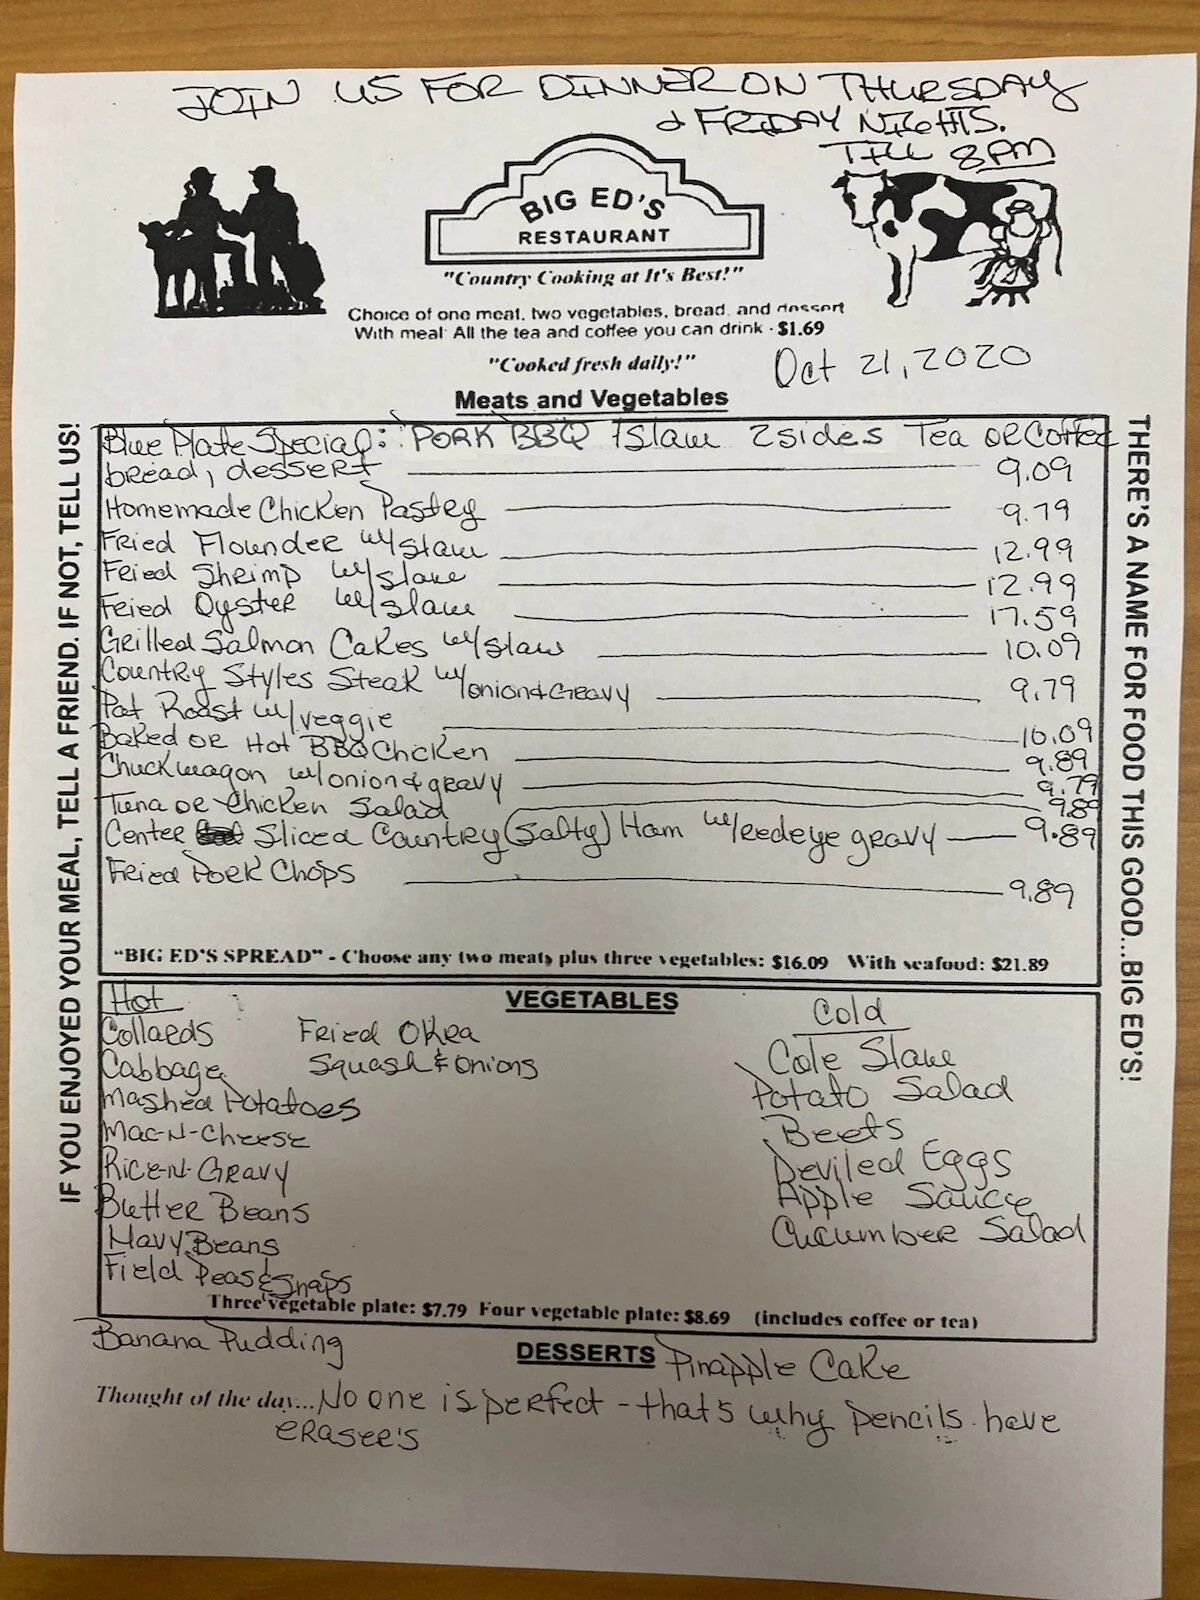 JOIN US FOR DINNER ON THURSDAY
& FRIDAY NIGHTS.
TILL 8PM
BIG ED'S
RESTAURANT
"Country Cooking at It's Best!"
Choice of one meat, two vegetables, bread, and dessert
With meal: All the tea and coffee you can drink - $1.69
"Cooked fresh daily!"
Oct 21, 2020
Meats and Vegetables
IF YOU ENJOYED YOUR MEAL, TELL A FRIEND. IF NOT, TELL US!
Blue Plate Special: PORK BBQ 1slaw 2sides Tea OR Coffee
bread, dessert 9.09
Homemade Chicken Pastry 9.79
Fried Flounder w/slaw 12.99
Fried Shrimp w/slaw 12.99
Fried Oyster w/slaw 17.59
Grilled Salmon Cakes w/slaw 10.09
Country Styles Steak w/onion & Gravy 9.79
Pot Roast w/veggie 10.09
Baked or Hot BBQ Chicken 9.89
Chuckwagon w/onion & gravy 9.79
Tuna or Chicken Salad 9.89
Center Sliced Country (Salty) Ham w/redeye gravy 9.89
Fried Pork Chops 9.89
"BIG ED'S SPREAD" - Choose any two meats plus three vegetables: $16.09 With seafood: $21.89
THERE'S A NAME FOR FOOD THIS GOOD...BIG ED'S!
VEGETABLES
Hot
Collards Fried Okra
Cabbage Squash & Onions
Mashed Potatoes
Mac-N-Cheese
Rice-N-Gravy
Butter Beans
Navy Beans
Field Peas & Snaps
Cold
Cole Slaw
Potato Salad
Beets
Deviled Eggs
Apple Sauce
Cucumber Salad
Three vegetable plate: $7.79 Four vegetable plate: $8.69 (includes coffee or tea)
Banana Pudding DESSERTS Pinapple Cake
Thought of the day... No one is perfect - that's why pencils have
eraser's